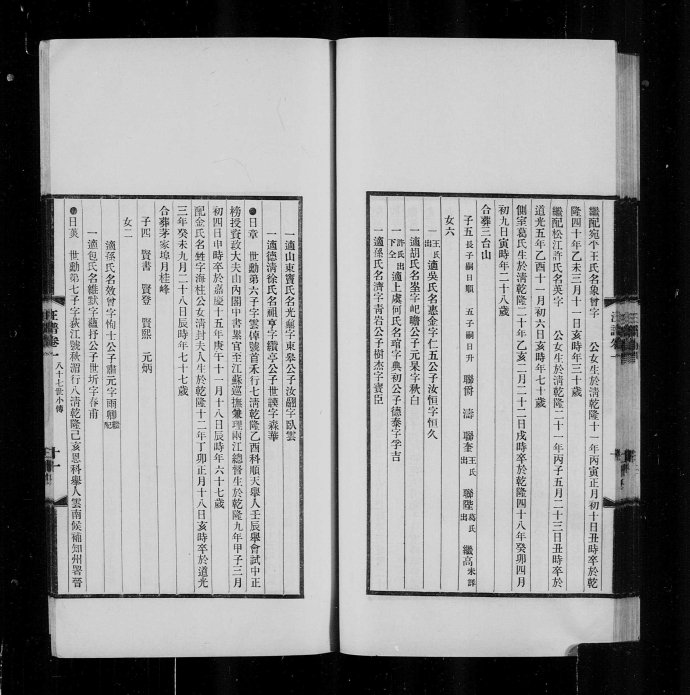 繼配宛平王氏名象曾字　公女生於清乾隆十一年丙寅正月初十日丑時卒於乾
隆四十年乙未三月十一日亥時年三十歲
繼配松江許氏名英字　公女生於清乾隆二十一年丙子五月二十三日丑時卒於
道光五年乙酉十一月初六日亥時年七十歲
側室葛氏生於清乾隆二十年乙亥二月二十二日戌時卒於乾隆四十八年癸卯四月
初九日寅時年二十八歲
合葬三台山
子五 長子嗣日順　五子嗣日升　聯爵　濤　聯奎 王氏出　聯陞 葛氏出　繼高 未詳
女六
王氏出 一適吳氏名惠金字仁五公子汝恒字恒久
一適胡氏名崟字屺瞻公子元杲字秋白
許氏出下仝 一適上虞何氏名琯字典初公子德泰字孚吉
一適孫氏名濟字青岩公子樹杰字寶臣
一適山東竇氏名光鼐字東皋公子汝翮字臥雲
一適德清徐氏名祖亨字纘亭公子世謨字森華
日章　世勳第六子字雲倬號首禾行七清乾隆乙酉科順天舉人壬辰會試中正
榜授資政大夫由內閣中書累官至江蘇巡撫兼理兩江總督生於乾隆九年甲子三月
初四日申時卒於嘉慶十五年庚午十一月十八日辰時年六十七歲
配金氏名甡字海柱公女清封夫人生於乾隆十二年丁卯正月十八日亥時卒於道光
三年癸未九月二十八日辰時年七十七歲
合葬茅家埠月桂峰
子四　賢書　賢登　賢熙　元炳
女二
一適孫氏名效曾字恂士公子肅元字雨卿 繼配
一適包氏名維默字蘊抒公子世圻字春甫
日炎　世勳第七子字荻江號秋湄行八清乾隆己亥恩科舉人雲南候補知州署晉
汪譜卷一　八十七世小傳